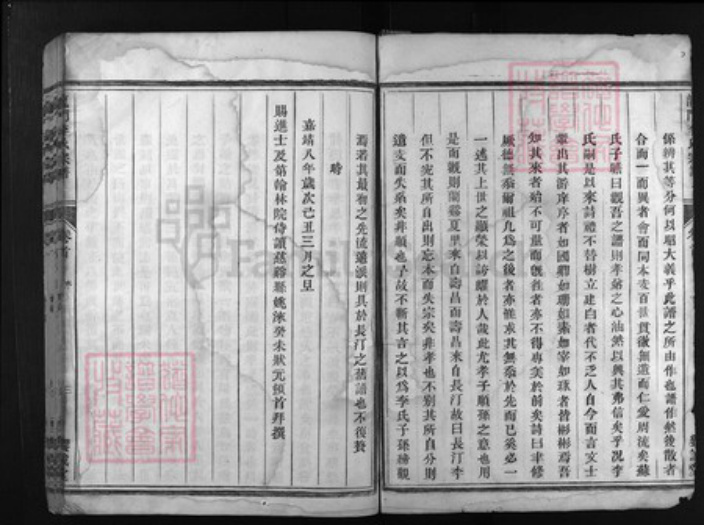 係辨其等分何以昭大義乎此譜之所由作也譜作然後散者
合而一而異者會而同本支百世貫徹無遺而仁愛周流矣蘇
氏子瞻曰觀吾之譜則孝弟之心油然以興其弗信矣乎况李
氏嗣是以來詩禮不替樹立建白者代不乏人自今而言文士
輩出其游庠序者如國聘如珊如梁如宰如球者皆彬彬焉吾
知其來者殆不可量而既往者亦不得專美於前矣詩曰聿修
厥德無忝爾祖凡為之後者亦惟求其無忝於先而已奚必一
一述其上世之顯榮以誇耀於人哉此尤孝子順孫之意也用
是而觀則蘭谿夏里來自壽昌而壽昌來自長汀故曰長汀李
但不究其所自出則忘本而失宗矣非孝也不别其所自分則
遺支而失系矣非順也予故不斬其言之以為李氏子孫稽觀
焉若其最初之先流遠派則具於長汀之舊譜也不復贅
時
嘉靖八年歲次己丑三月之旦
賜進士及第翰林院侍讀慈谿縣姚淶癸未狀元頓首拜撰
卷首